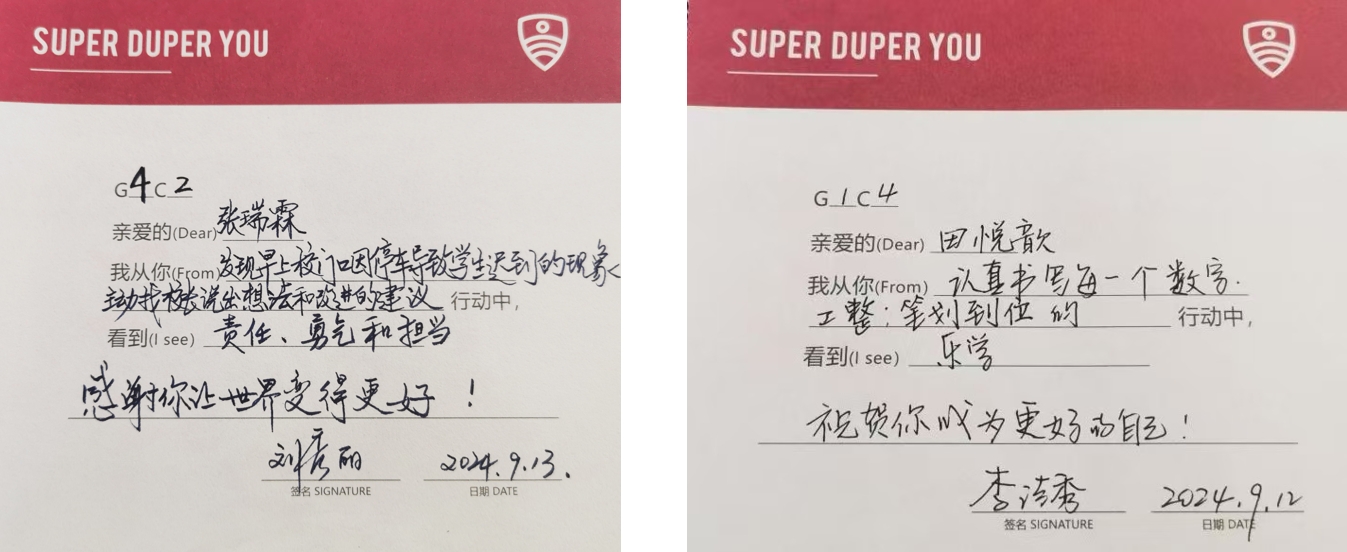 SUPER DUPER YOU
G4C2
亲爱的(Dear)张瑞霖
我从你(From)发现早上校门口因停车导致学生迟到的现象
主动找校长说出想法和改进的建议 行动中，
看到(I see)责任、勇气和担当
感谢你让世界变得更好！
刘秀丽 2024.9.13.
签名 SIGNATURE 日期 DATE
SUPER DUPER YOU
G1C4
亲爱的(Dear)田悦歆
我从你(From)认真书写每一个数字.
工整；笔划到位的 行动中，
看到(I see)乐学
祝贺你成为更好的自己！
李洁秀 2024.9.12
签名 SIGNATURE 日期 DATE